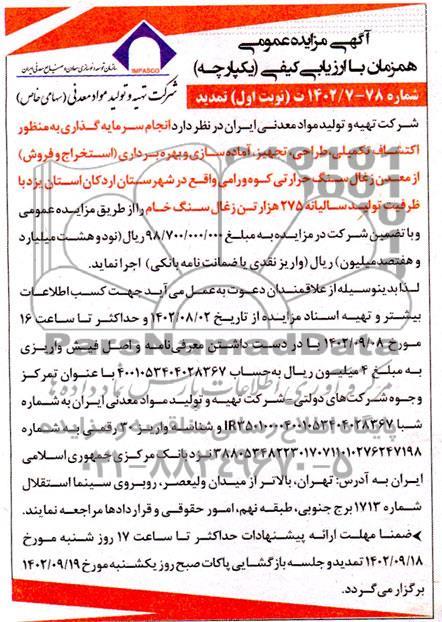 آگهی مزایده عمومی
همزمان با ارزیابی کیفی (یکپارچه)
سازمان توسعه و نوسازی معادن و صنایع معدنی ایران
IMPASCO
شرکت تهیه و تولید مواد معدنی (سهامی خاص)
شماره ۷۸-۱۴۰۲/۷ ت (نوبت اول) تمدید
شرکت تهیه و تولید مواد معدنی ایران در نظر دارد انجام سرمایه گذاری به منظور
اکتشاف تکمیلی، طراحی، تجهیز، آماده سازی و بهره برداری (استخراج و فروش)
از معدن زغال سنگ حرارتی کوه ورامی واقع در شهرستان اردکان استان یزد با
ظرفیت تولید سالیانه ۲۷۵ هزار تن زغال سنگ خام را از طریق مزایده عمومی
و با تضمین شرکت در مزایده به مبلغ ۹۸/۷۰۰/۰۰۰/۰۰۰ ریال (نود و هشت میلیارد
و هفتصد میلیون) ریال (واریز نقدی یا ضمانت نامه بانکی) اجرا نماید.
لذا بدینوسیله از علاقمندان دعوت به عمل می آید جهت کسب اطلاعات
بیشتر و تهیه اسناد مزایده از تاریخ ۱۴۰۲/۰۸/۰۲ و حداکثر تا ساعت ۱۶
مورخ ۱۴۰۲/۰۹/۰۸ با در دست داشتن معرفی نامه و اصل فیش واریزی
به مبلغ ۴ میلیون ریال به حساب ۴۰۰۱۰۵۳۴۰۴۰۲۸۳۶۷ با عنوان تمرکز
وجوه شرکت های دولتی_شرکت تهیه و تولید مواد معدنی ایران به شماره
شبا IR۳۵۰۱۰۰۰۰۴۰۰۱۰۵۳۴۰۴۰۲۸۳۶۷ و شناسه واریز ۳۰ رقمی به شماره
۳۸۸۰۵۳۴۸۲۲۳۰۱۷۰۷۱۱۰۱۰۲۷۶۲۴۷۱۹۸ نزد بانک مرکزی جمهوری اسلامی
ایران به آدرس: تهران، بالاتر از میدان ولیعصر، روبروی سینما استقلال
شماره ۱۷۱۳ برج جنوبی، طبقه نهم، امور حقوقی و قراردادها مراجعه نمایند.
ضمنا مهلت ارائه پیشنهادات حداکثر تا ساعت ۱۷ روز شنبه مورخ
۱۴۰۲/۰۹/۱۸ تمدید و جلسه بازگشایی پاکات صبح روز یکشنبه مورخ ۱۴۰۲/۰۹/۱۹
برگزار می گردد.
ParsNamadData
۰۲۱-۸۸۳۴۹۶۷۰-۵